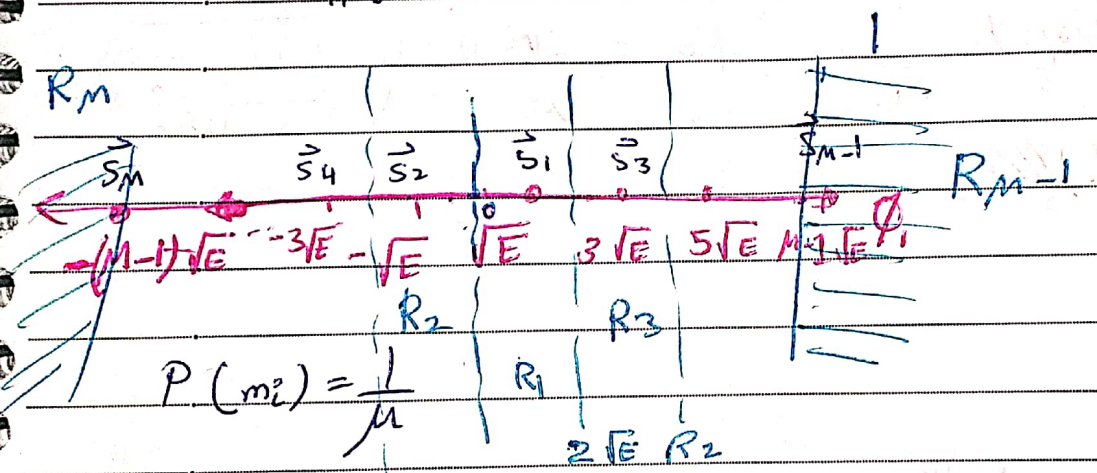 1
R_M
S⃗_M S⃗_4 S⃗_2 S⃗_1 S⃗_3 S_M-1 R_M-1
0 ϕ_1
-(M-1)√E ...-3√E -√E √E 3√E 5√E M-1√E
R_2 R_3
P(m_i) = 1/M R_1
2√E R_2